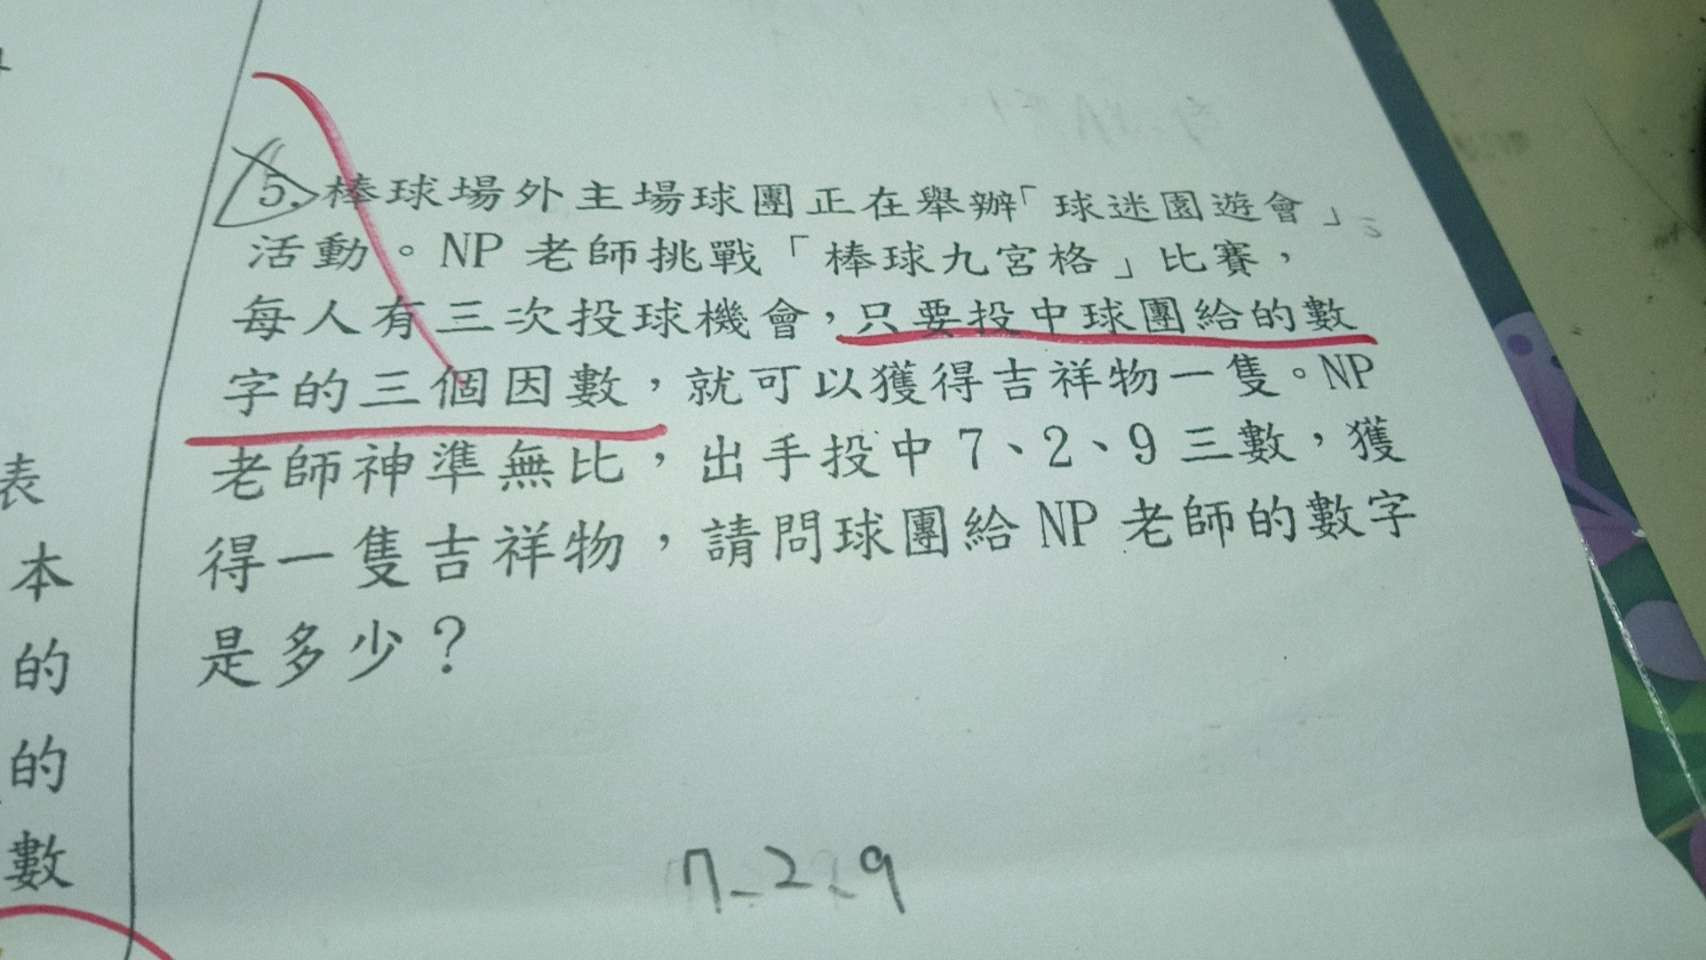 5. 棒球場外主場球團正在舉辦「球迷園遊會」
活動。NP 老師挑戰「棒球九宮格」比賽，
每人有三次投球機會，只要投中球團給的數
字的三個因數，就可以獲得吉祥物一隻。NP
老師神準無比，出手投中 7、2、9 三數，獲
得一隻吉祥物，請問球團給 NP 老師的數字
是多少？
7、2、9
表
本
的
的
數